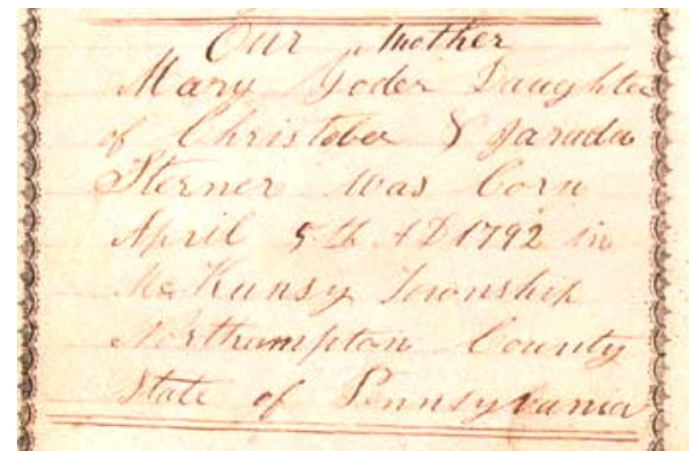 Our Mother
Mary Yoder Daughter
of Christober &
Sterner was born
April 5th AD 1792 in
McKunsy Township
Northampton County
State of Pennsylvania